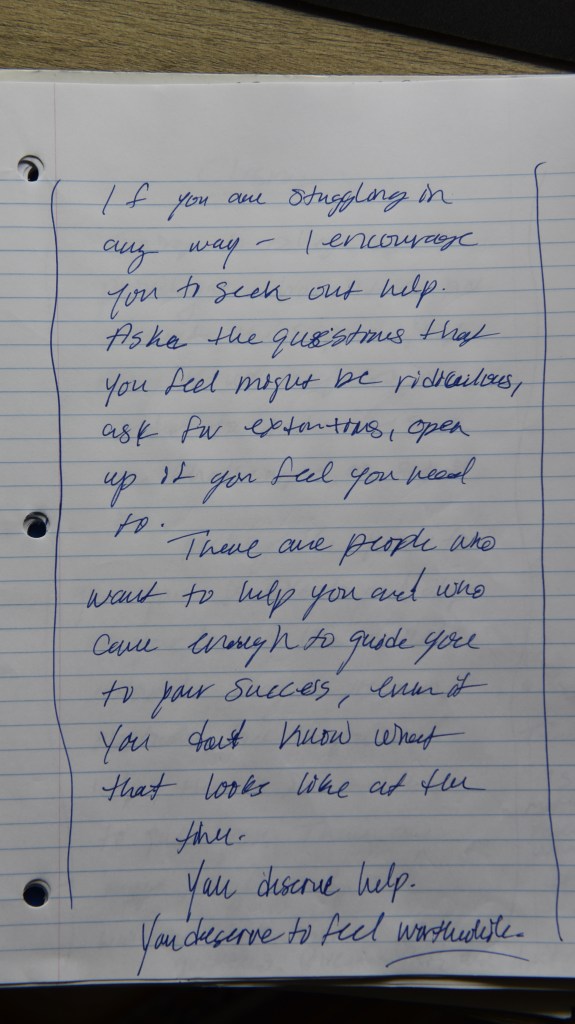 If you are stuggling in
any way - I encourage
you to seek out help.
Aske the questions that
you feel might be ridiculous,
ask for extentions, open
up if you feel you need
to.
There are people who
want to help you and who
care enough to guide you
to your success, even if
you dont know what
that looks like at the
time.
You deserve help.
You deserve to feel worthwhile.